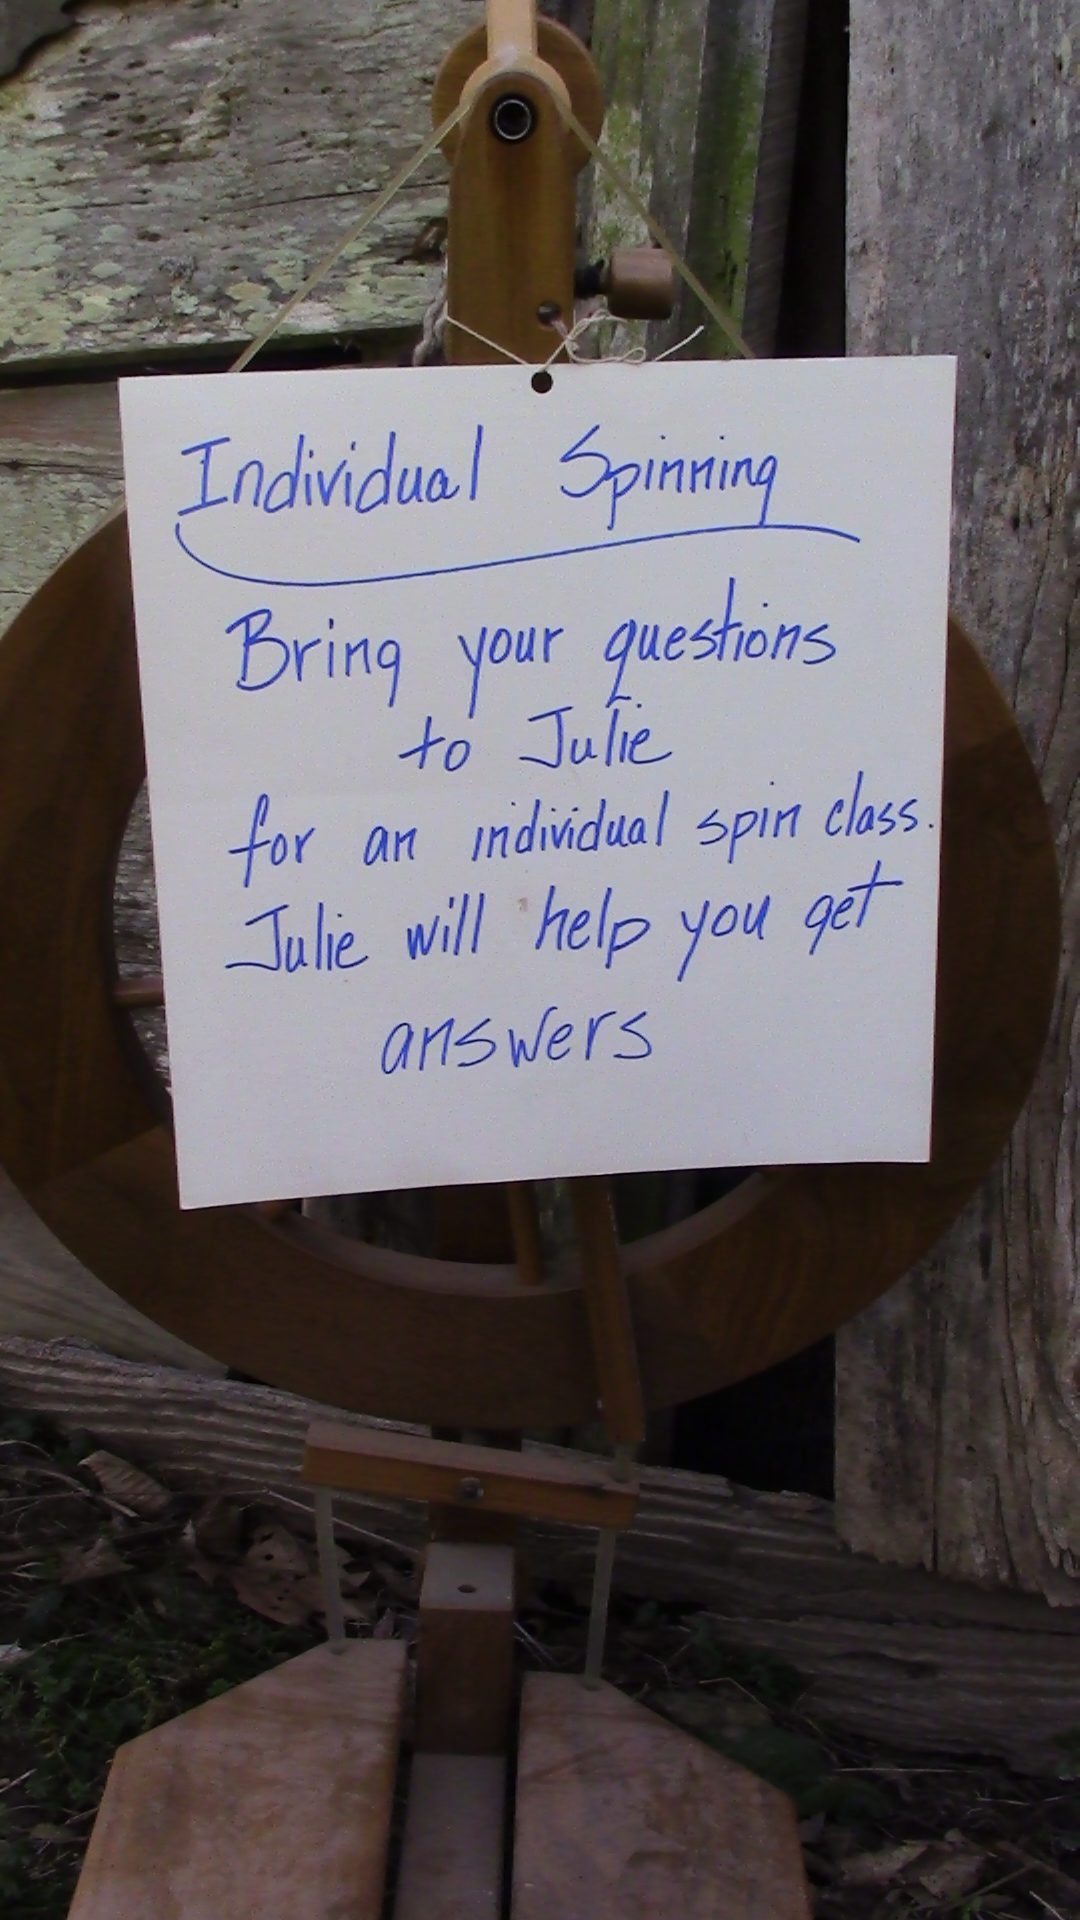 Individual Spinning
Bring your questions
to Julie
for an individual spin class.
Julie will help you get
answers